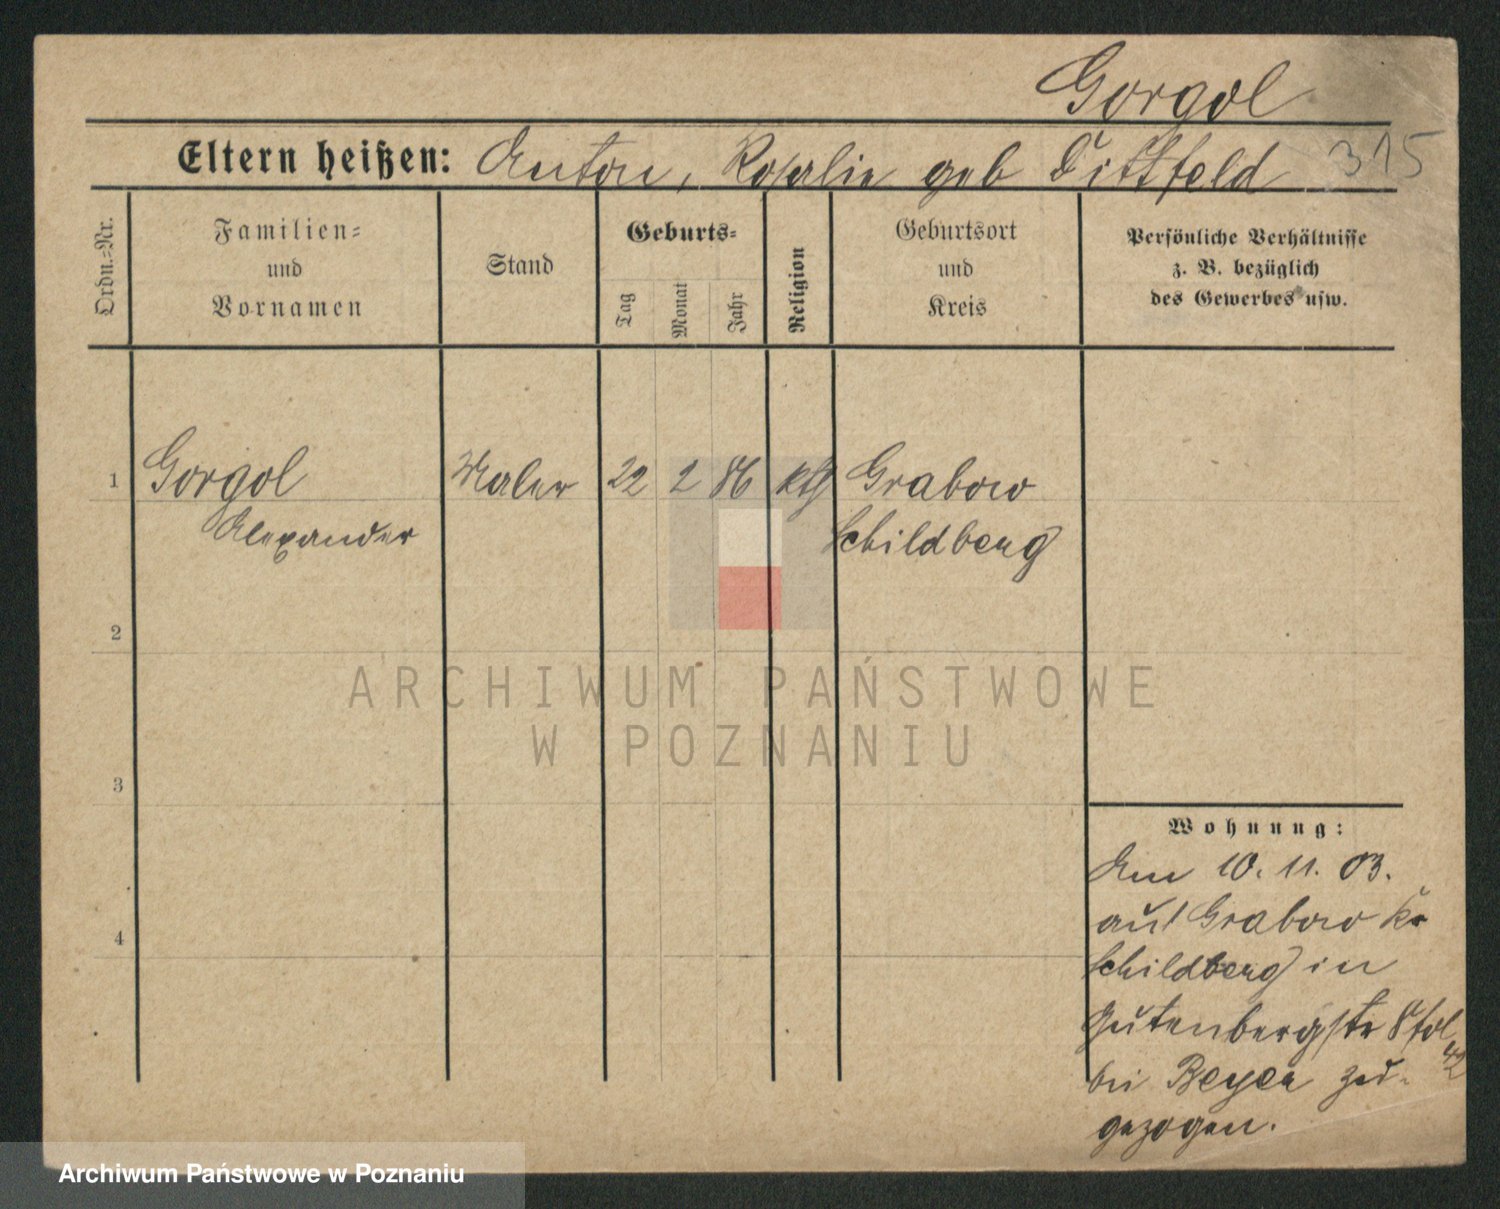 Gorgol
Eltern heißen: Anton, Rosalie geb Dittfeld 315
Ordn.-Nr.
Familien-
und
Vornamen
Stand
Geburts-
Tag
Monat
Jahr
Religion
Geburtsort
und
Kreis
Persönliche Verhältnisse
z. B. bezüglich
des Gewerbes usw.
1 Gorgol Maler 22 2 86 kth Grabow
Alexander Schildberg
2
3
4
ARCHIWUM PAŃSTWOWE
W POZNANIU
Wohnung:
Am 10. 11. 03.
aus Grabow Kr
Schildberg in
Gutenbergstr
42
bei Beyer zu-
gezogen.
Archiwum Państwowe w Poznaniu